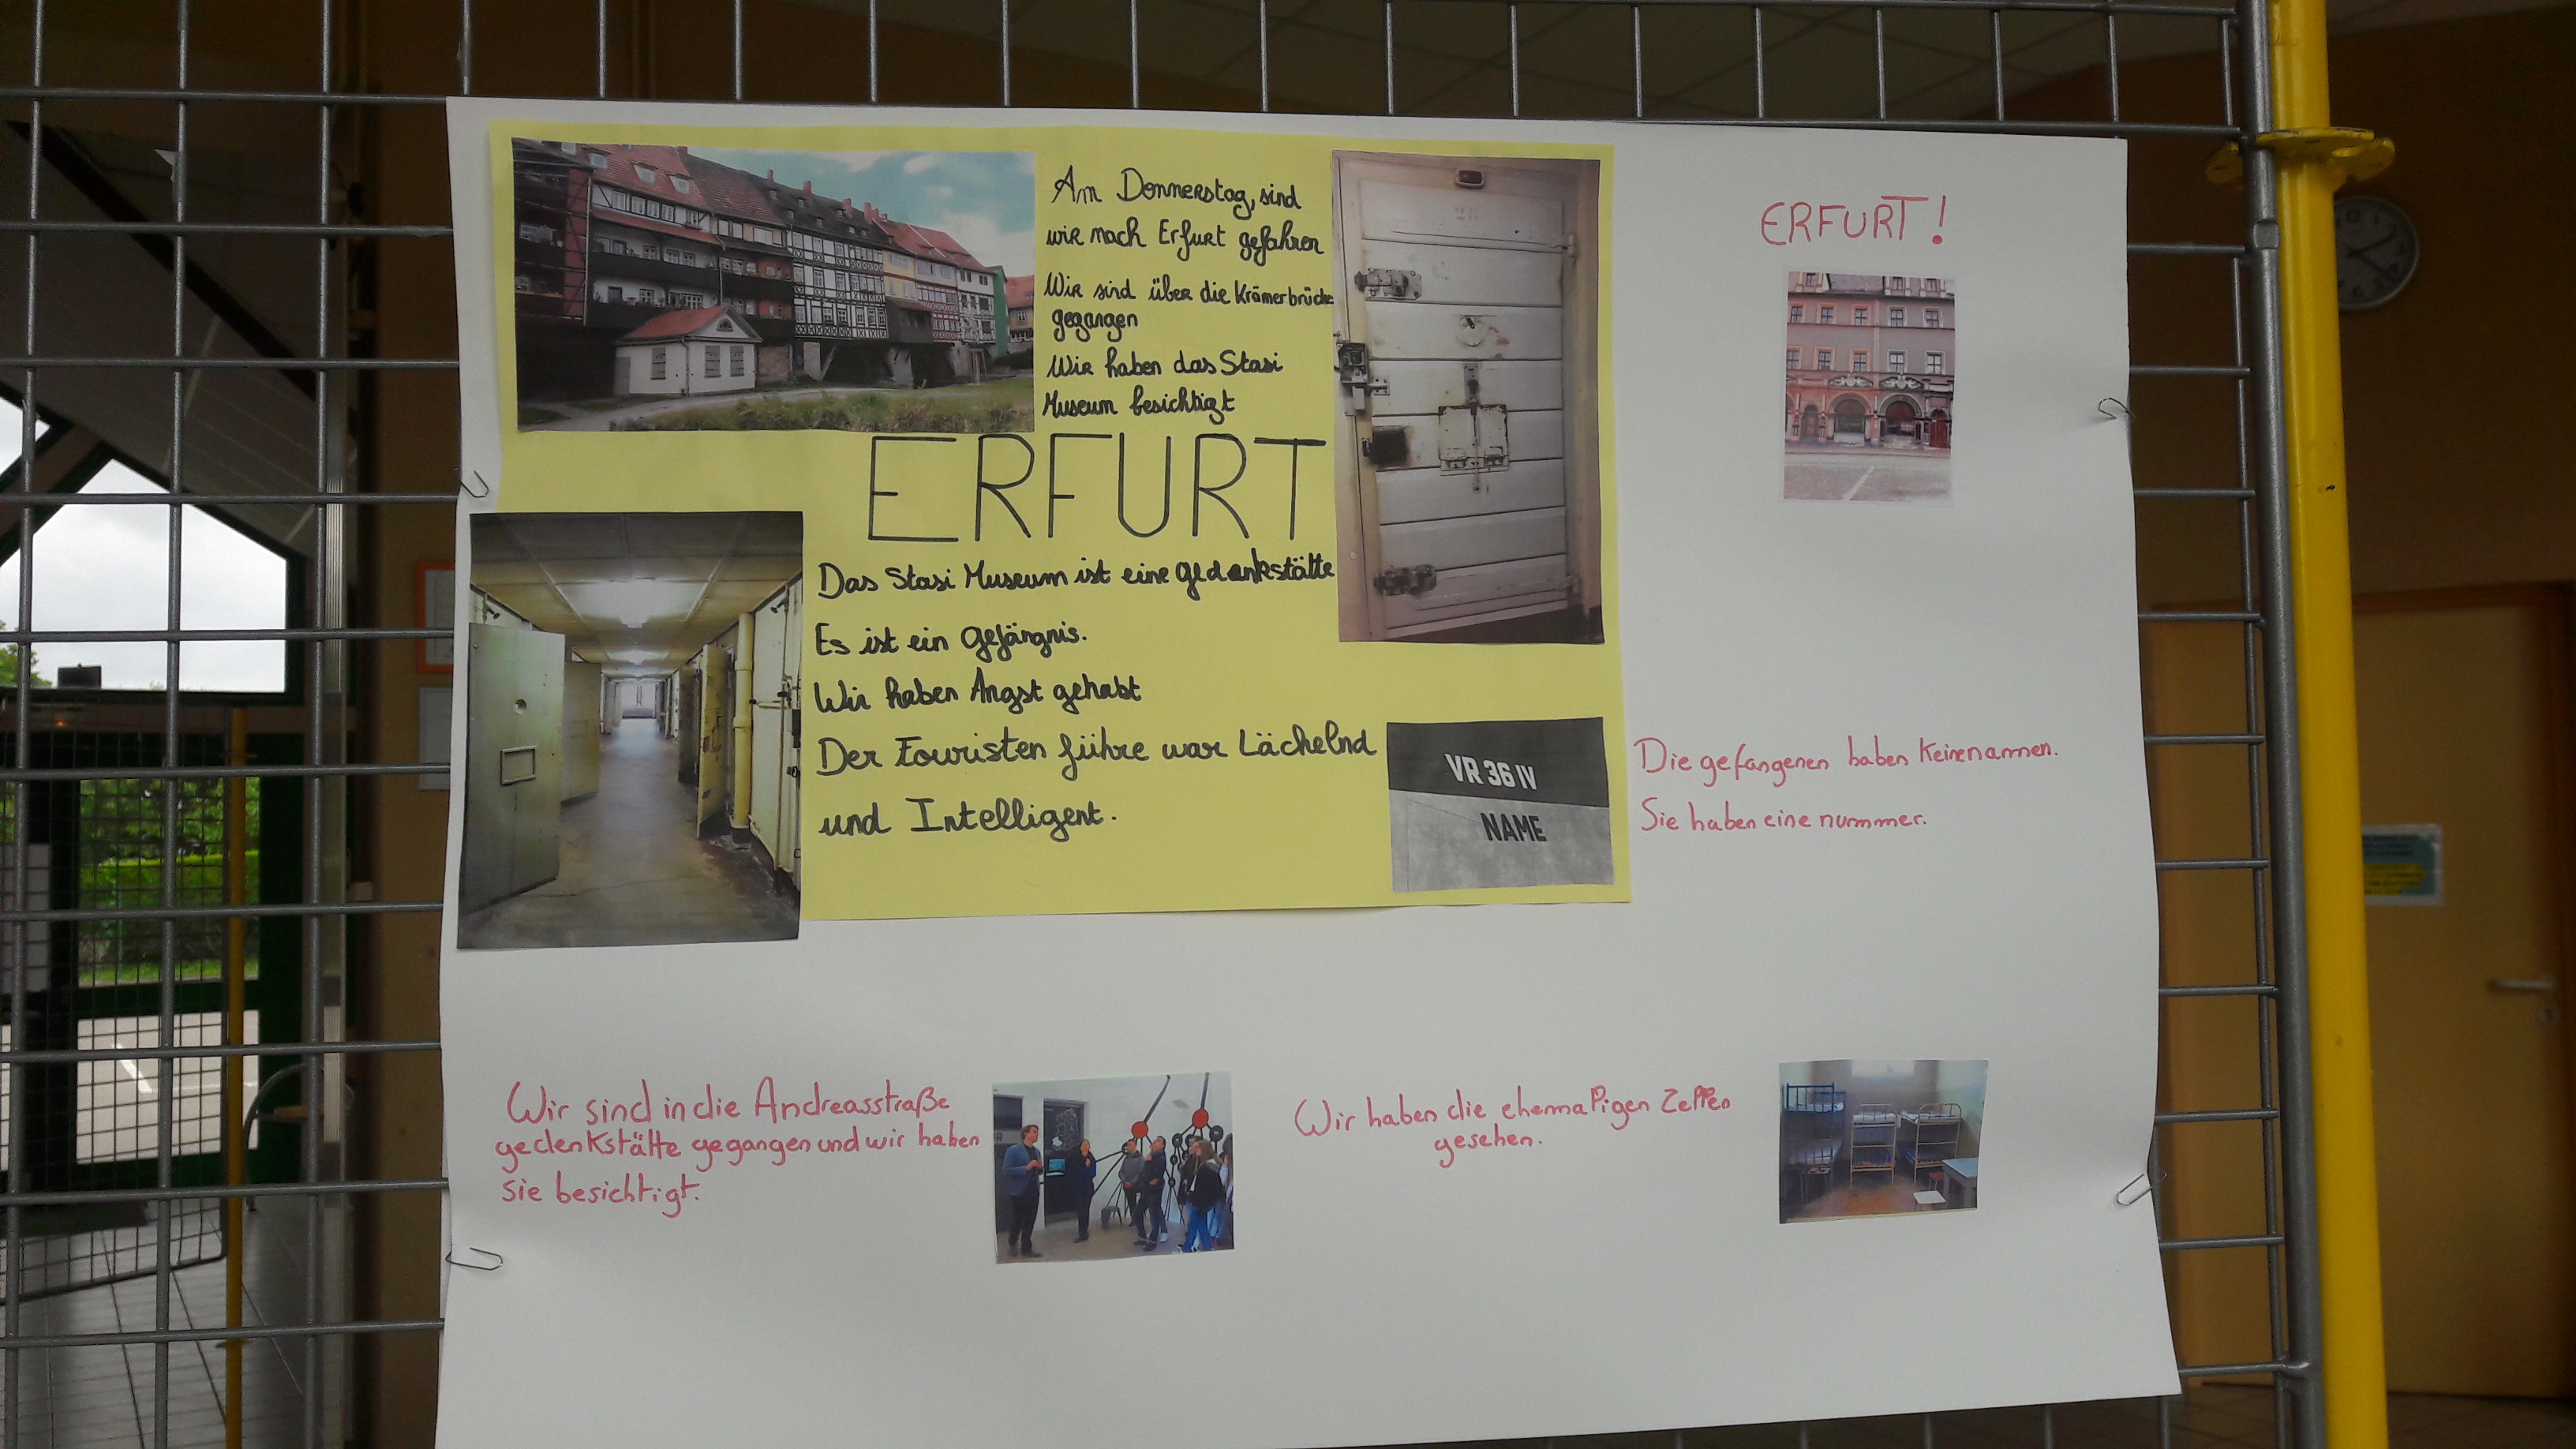 Am Donnerstag, sind
wir nach Erfurt gefahren
Wir sind über die Krämerbrücke
gegangen
Wir haben das Stasi
Museum besichtigt
ERFURT
Das Stasi Museum ist eine gedankstätte
Es ist ein Gefängnis.
Wir haben Angst gehabt
Der Touristen führe war Lächelnd
und Intelligent.
VR 36 IV
NAME
ERFURT!
Die gefangenen haben Keinenamen.
Sie haben eine nummer.
Wir sind in die Andreasstraße
gedenkstätte gegangen und wir haben
sie besichtigt.
Wir haben die ehemaligen Zellen
gesehen.